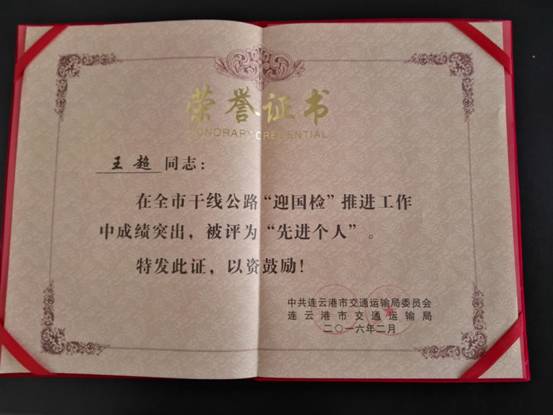 荣誉证书
HONORARY CREDENTIAL
王超 同志：
在全市干线公路“迎国检”推进工作
中成绩突出，被评为“先进个人”。
特发此证，以资鼓励！
中共连云港市交通运输局委员会
连云港市交通运输局
二〇一六年二月